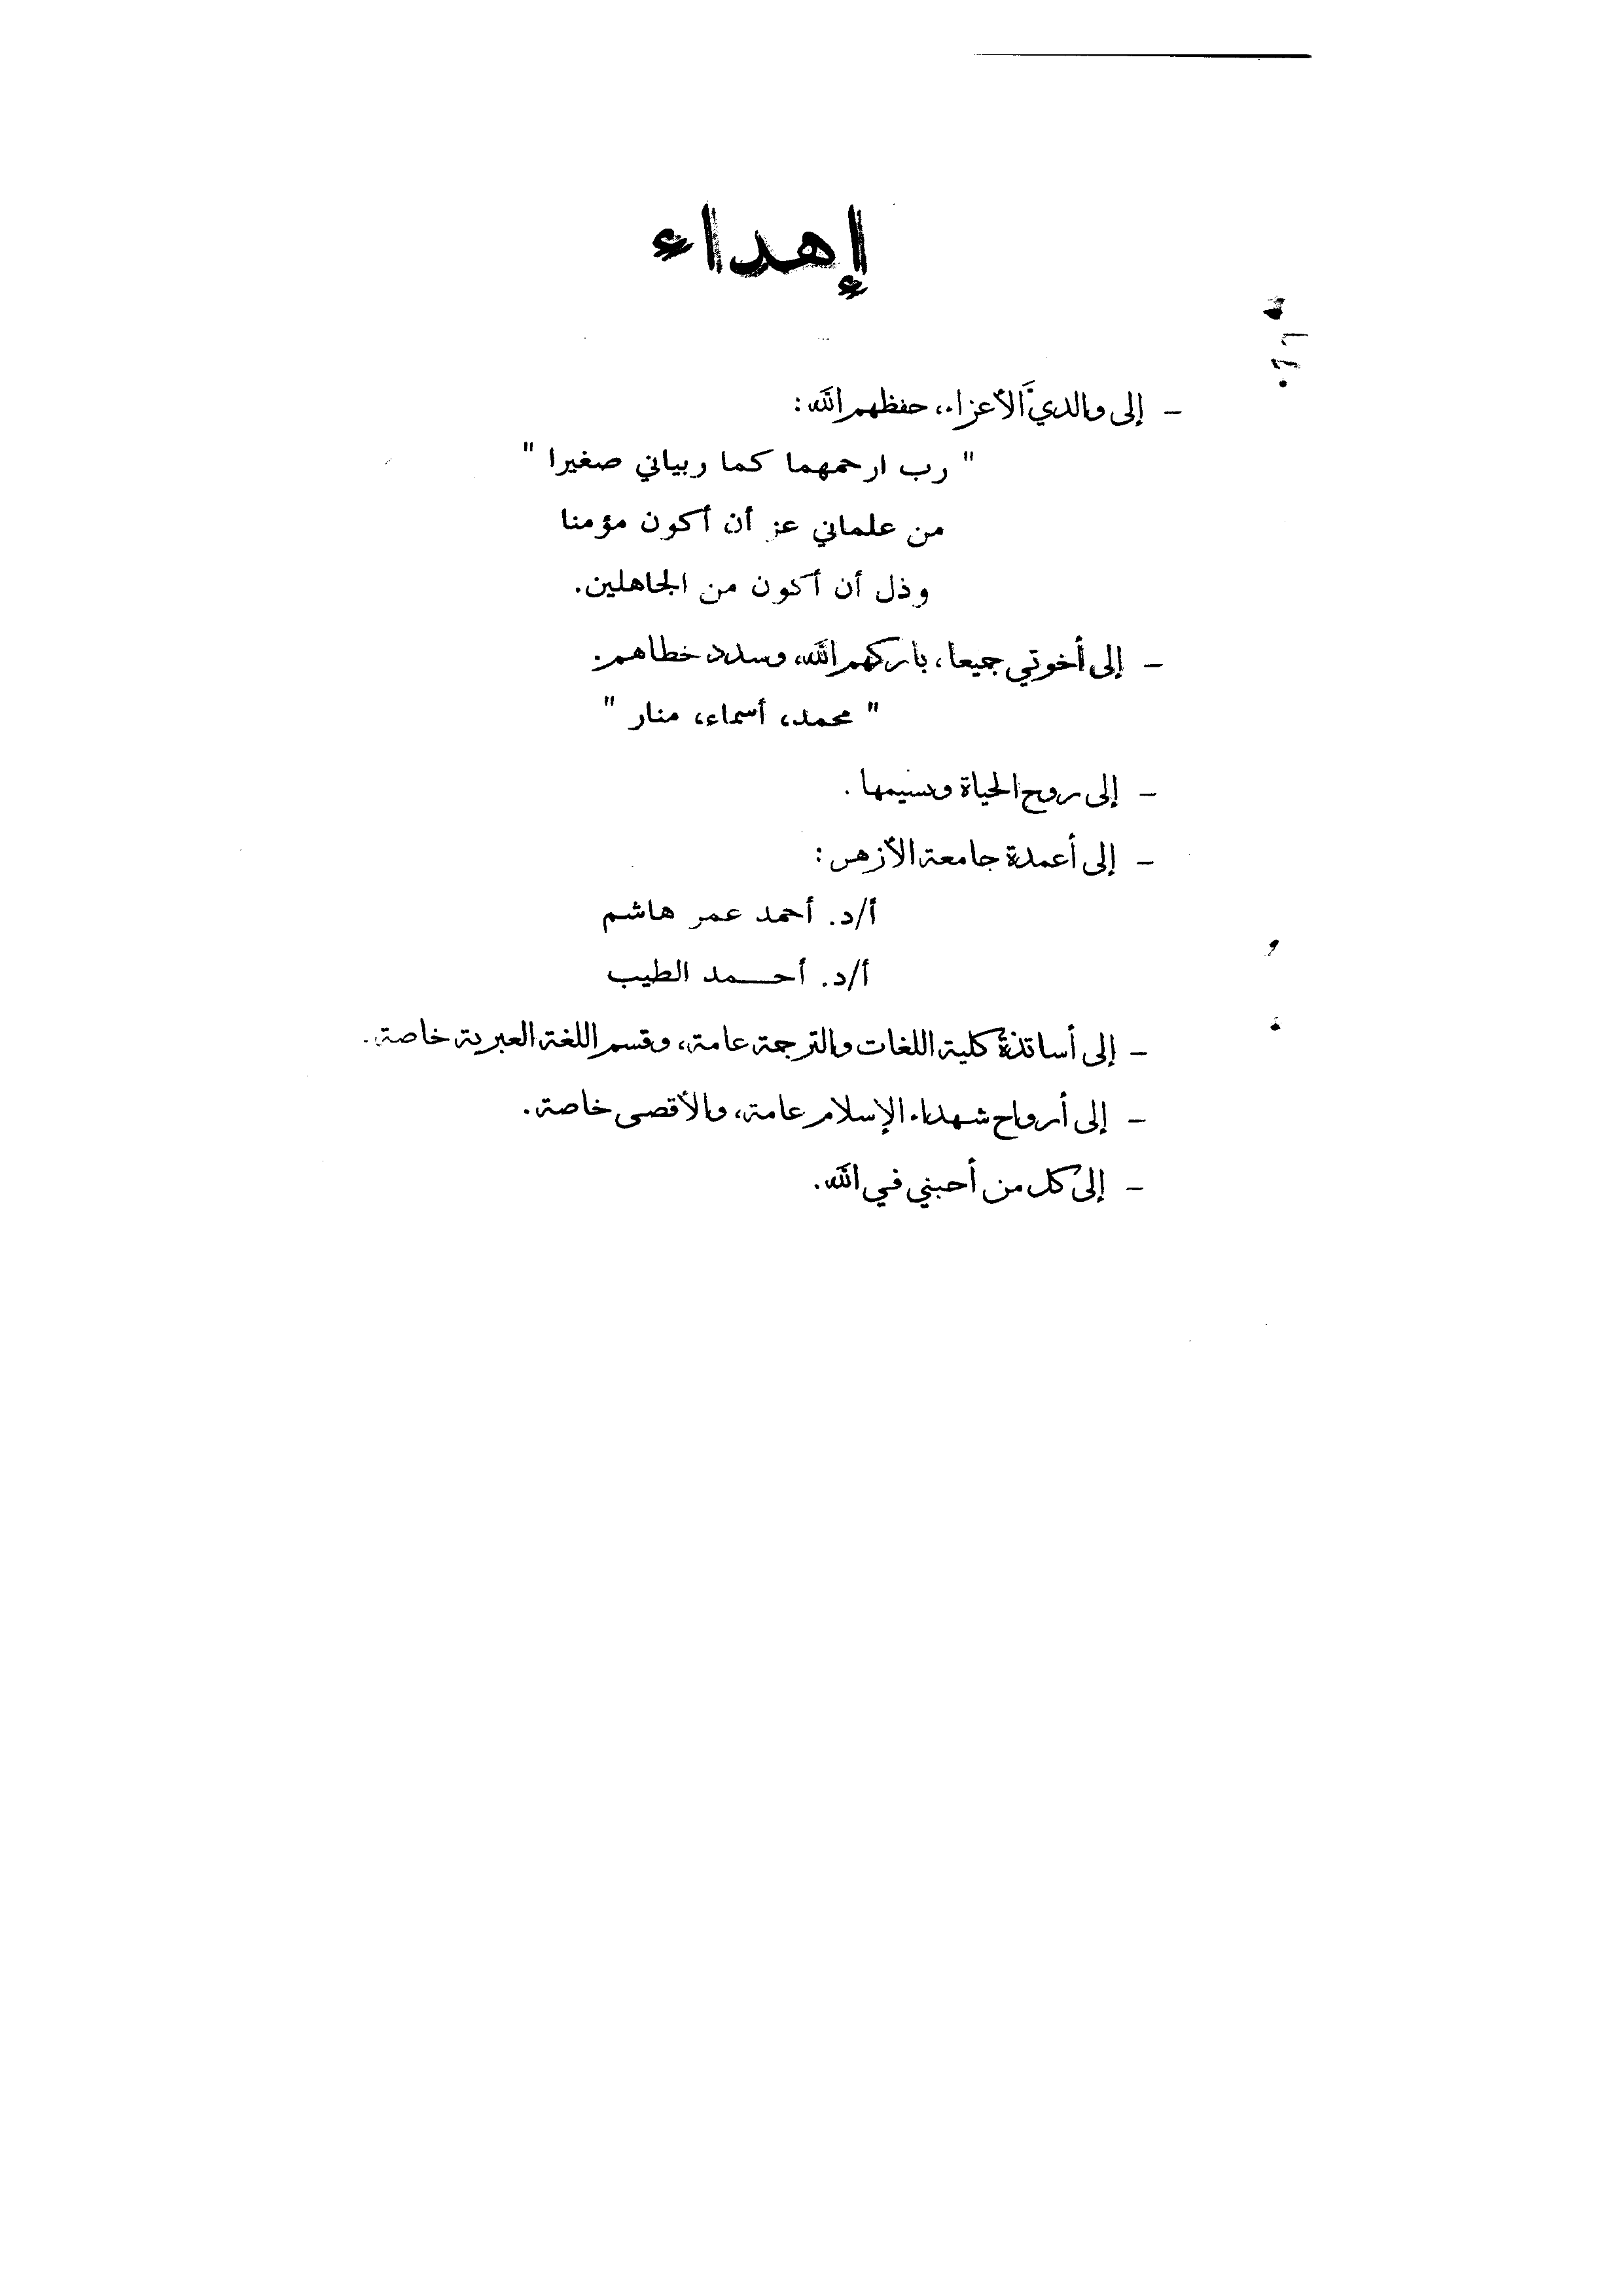 إهداء
- إلى والديَّ الأعزاء، حفظهم الله:
" رب ارحمهما كما ربياني صغيرا "
من علماني عز أن أكون مؤمنا
وذل أن أكون من الجاهلين.
- إلى أخوتي جميعا، باركهم الله، وسدد خطاهم.
" محمد، أسماء، منار "
- إلى روح الحياة ونسيمها .
- إلى أعمدة جامعة الأزهر:
أ/د. أحمد عمر هاشم
أ/د. أحـــمد الطيب
- إلى أساتذة كلية اللغات والترجمة عامة، وقسم اللغة العبرية خاصة.
- إلى أرواح شهداء الإسلام عامة، والأقصى خاصة.
- إلى كل من أحبني في الله.